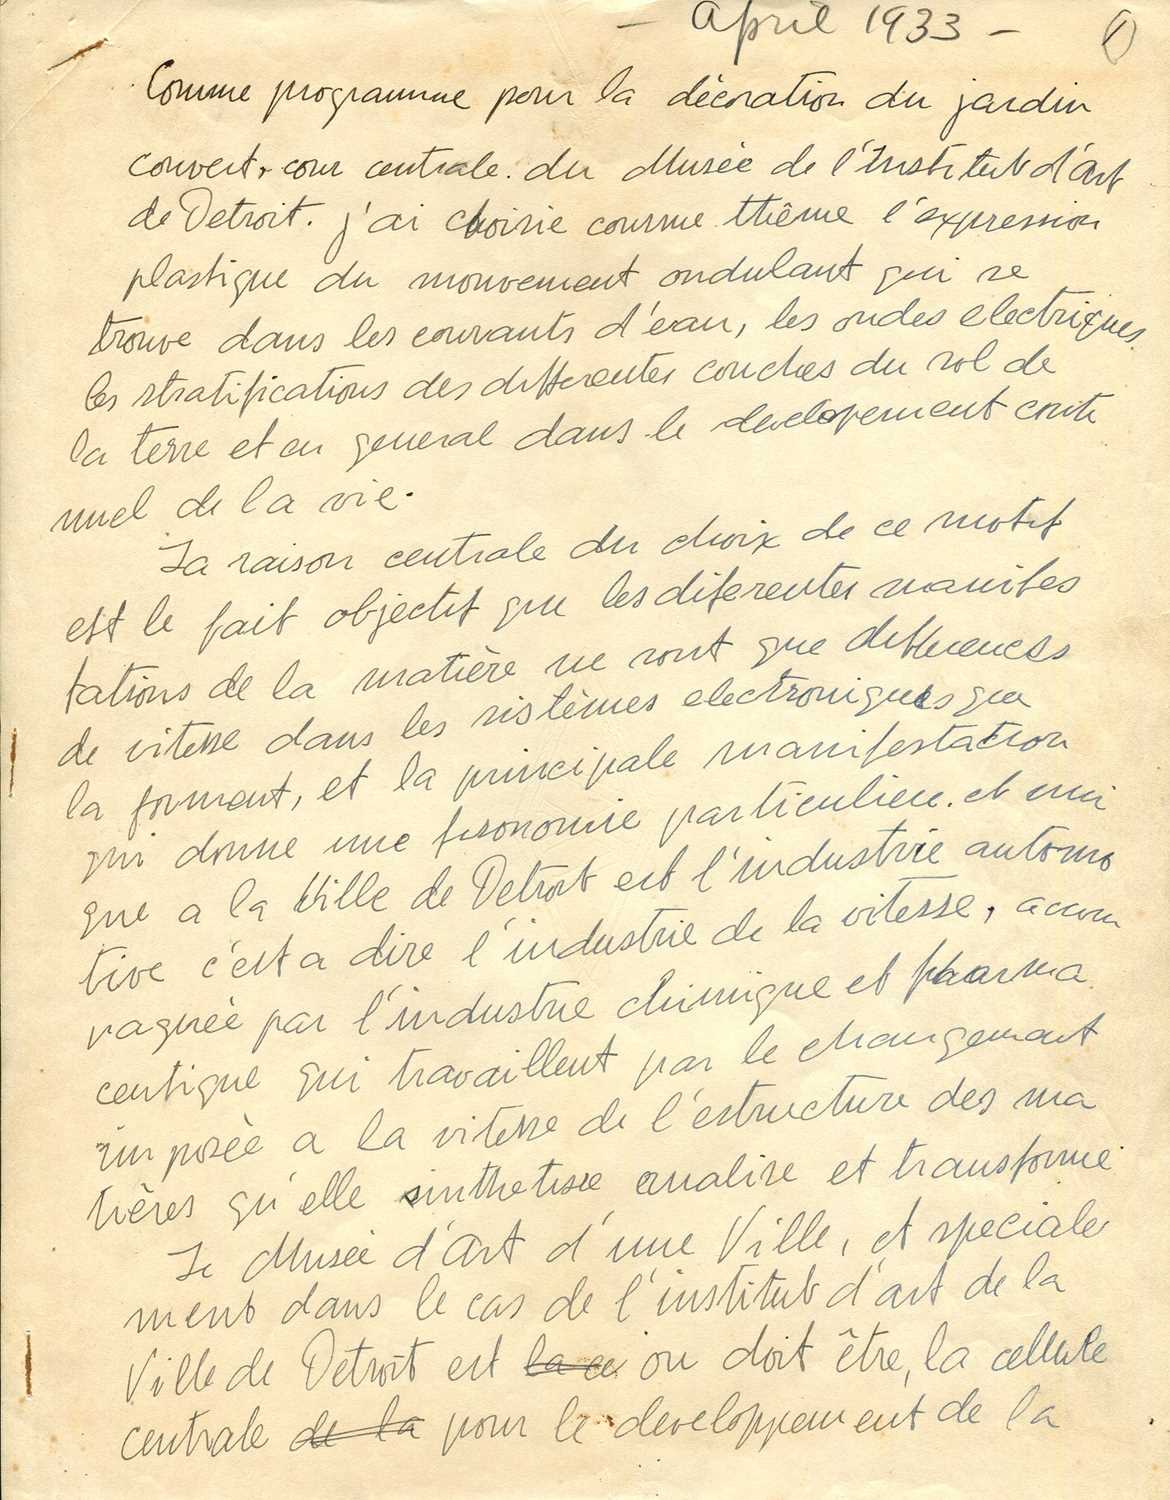 - April 1933 -
1
Comme programme pour la décoration du jardin
couvert, cour centrale. du Musée de l'Institut d'Art
de Detroit. j'ai choisie comme thème l'expression
plastique du mouvement ondulant qui se
trouve dans les courants d'eau, les ondes electriques
les stratifications des differentes couches du sol de
la terre et en general dans le developement conti
nuel de la vie.
La raison centrale du choix de ce motif
est le fait objectif que les diferentes manifes
tations de la matière ne sont que differences
de vitesse dans les sistèmes electroniques que
la forment, et la principale manifestation
qui donne une fisonomie particuliere. et uni
que a la Ville de Detroit est l'industrie automo
tive c'est a dire l'industrie de la vitesse, accom
pagnée par l'industrie chimique et pharma
ceutique qui travaillent par le changement
imposée a la vitesse de l'estructure des ma
tières qu'elle sinthetise analise et transforme
Le Musée d'Art d'une Ville, et speciale
ment dans le cas de l'institut d'art de la
Ville de Detroit est la ce ou doit être, la cellule
centrale de la pour le developpement de la